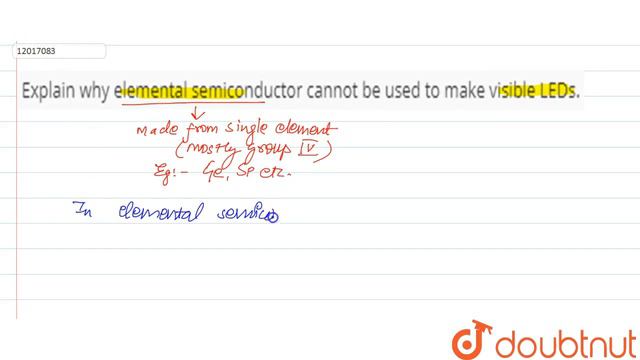 12017083
Explain why elemental semiconductor cannot be used to make visible LEDs.
made from single element
(mostly group IV)
Eg:- Ge, Si etc.
In elemental semico
doubtnut